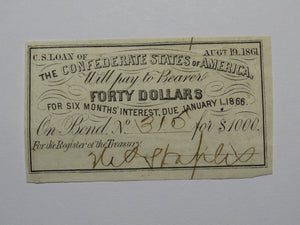 C.S. LOAN OF AUGT 19. 1861.
THE CONFEDERATE STATES OF AMERICA,
Will pay to Bearer
FORTY DOLLARS
FOR SIX MONTHS' INTEREST, DUE JANUARY 1, 1866.
On Bond, No. 315 for $1000.
For the Register of the Treasury